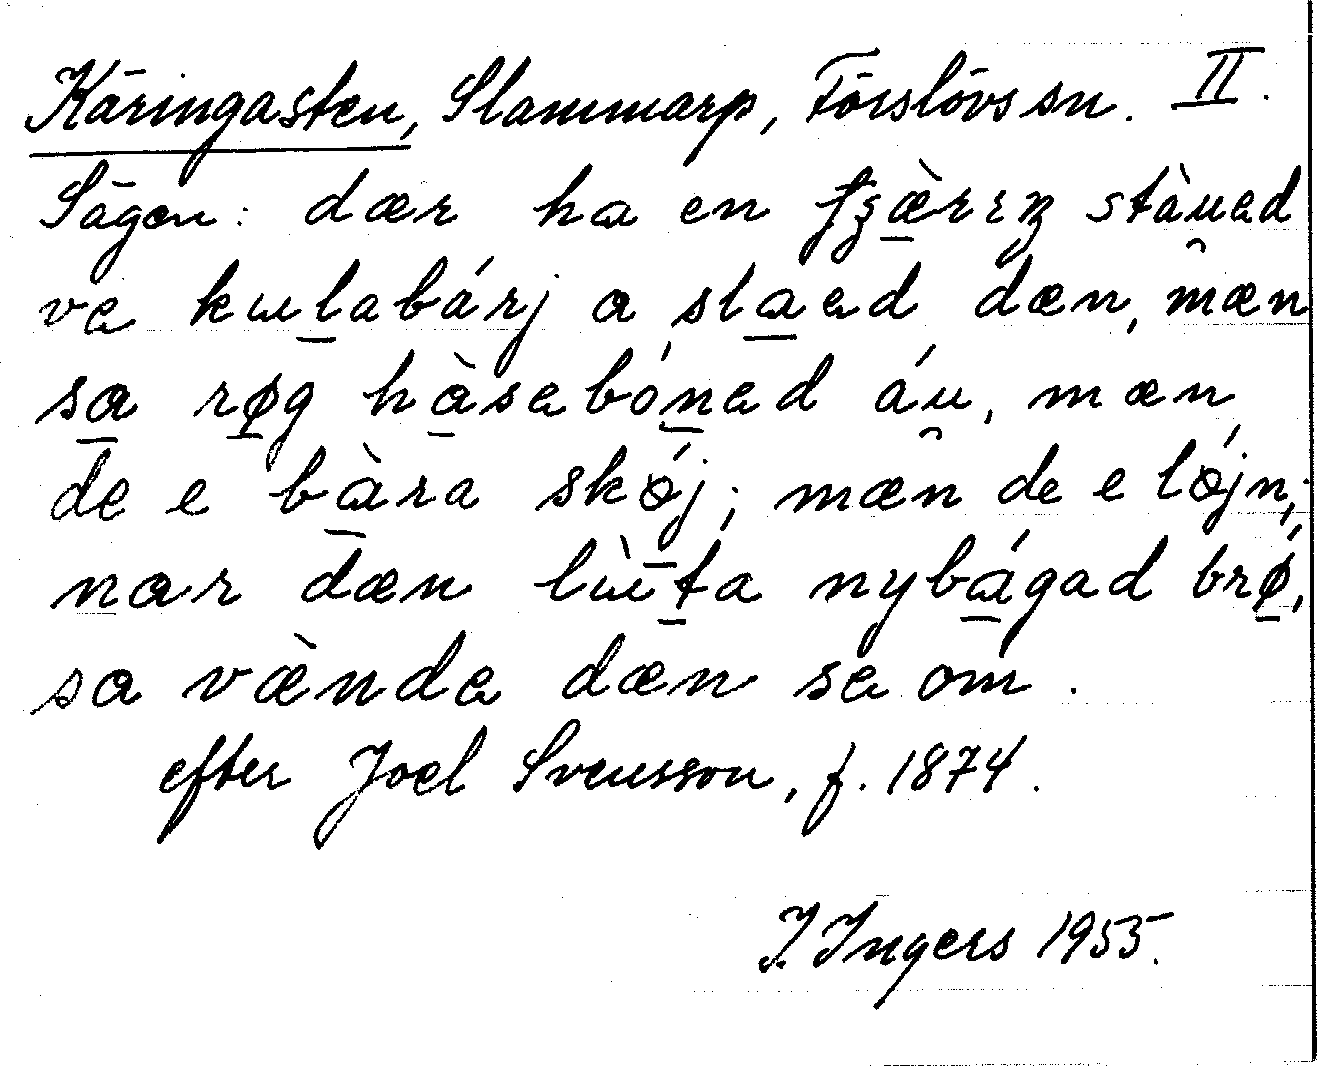 Käringasten, Slammarp, Förslövs sn. II.
Sägen: dær ha en fʒæ̀rrɪŋ stàu̯ad
ve kulabárj a slaad dæn, mæn
sa røg hàsabónad áu̯, mæn
de e bàra skǿj; mæn de e lǿjn;
nær dæn lùta nybágad brǿ,
sa væ̀nda dæn se om.
efter Joel Svensson, f. 1874.
I. Ingers 1955.